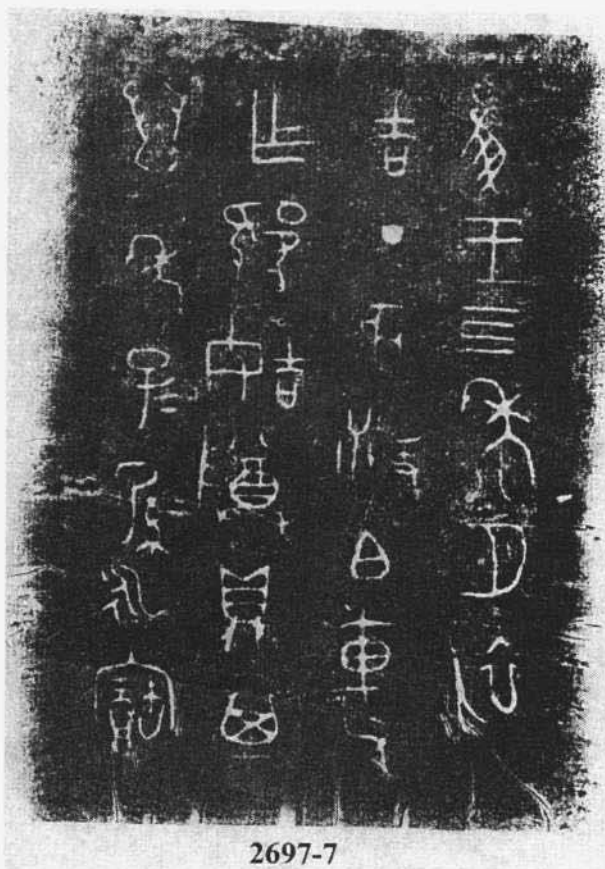 隹王三年八月初
吉丁亥散白車父
乍姞尊鼎其
萬年子=孫永寶
2697-7